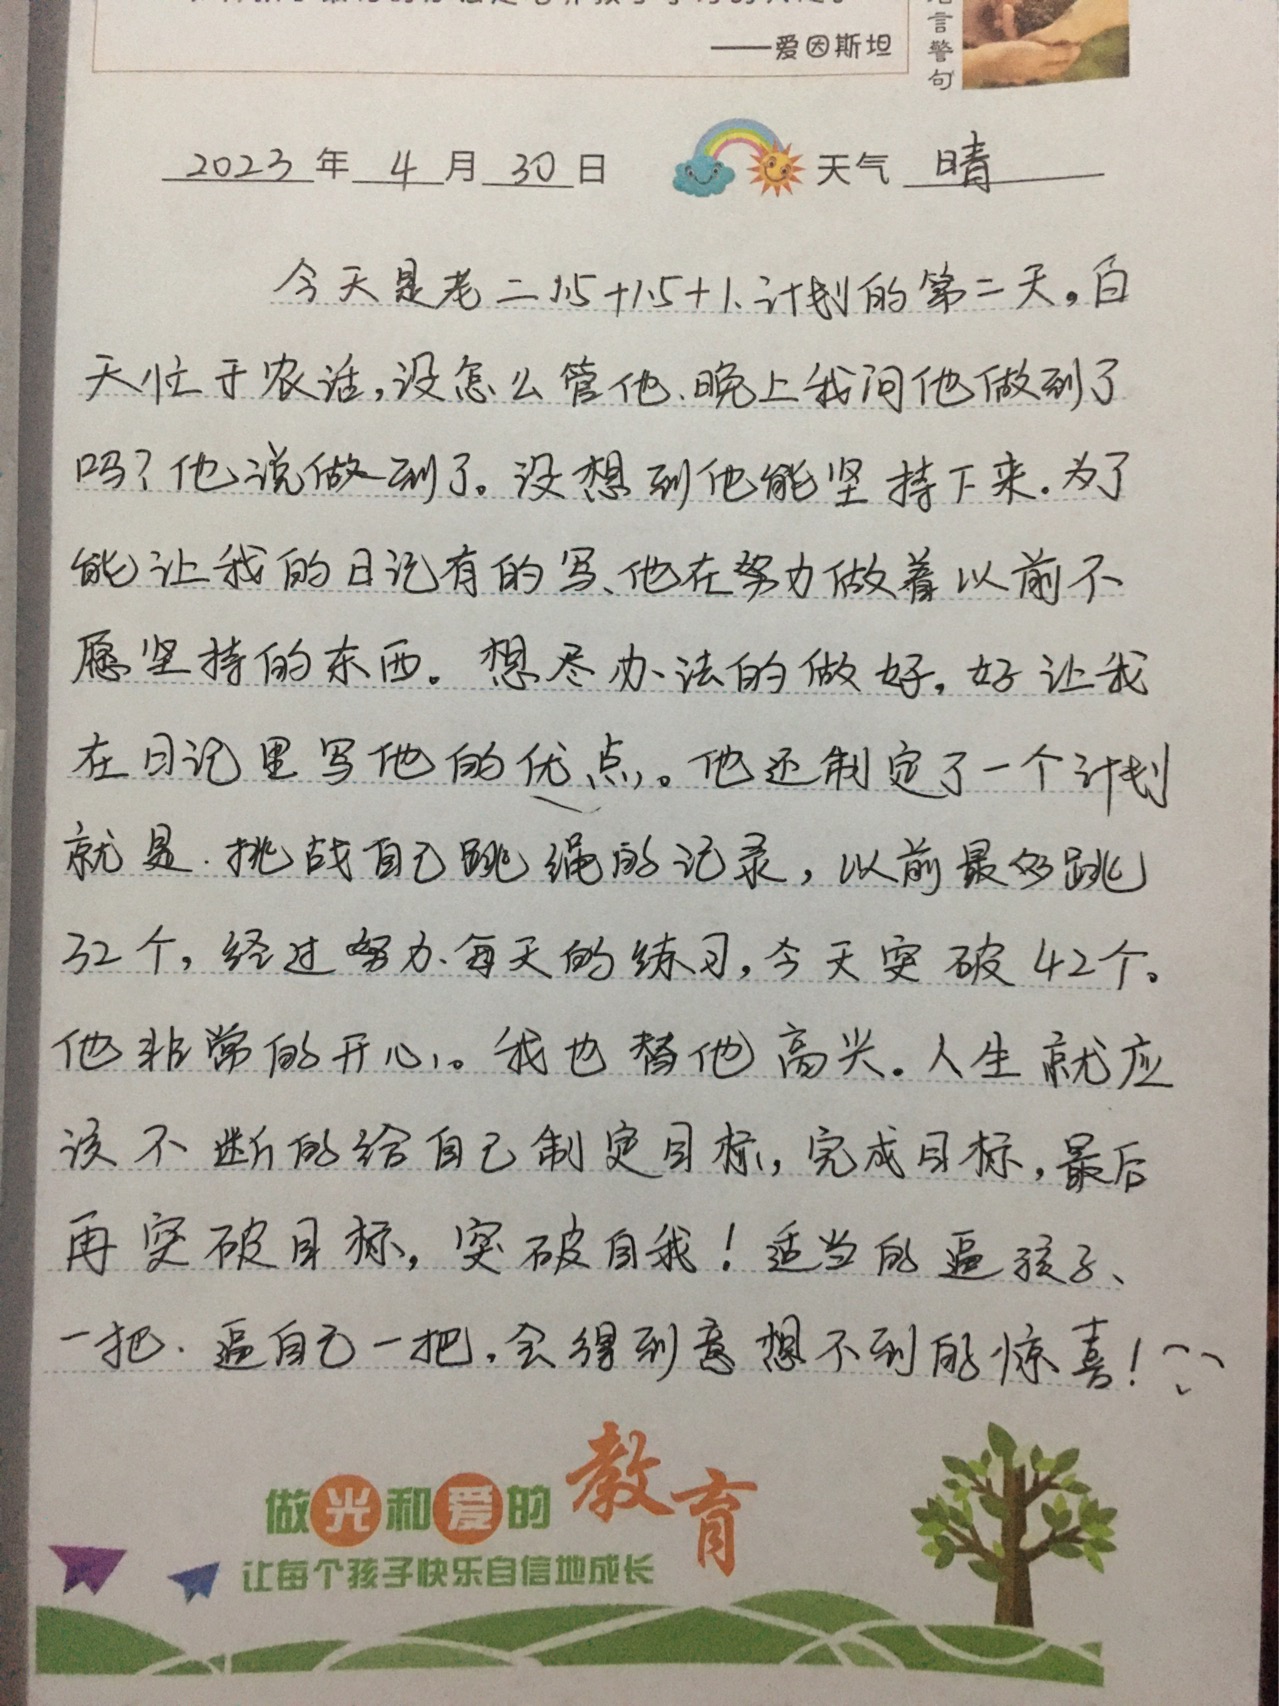 ——爱因斯坦
言警句
2023年4月30日 天气 晴
今天是老二1.5+1.5+1.计划的第二天。白
天忙于农活,没怎么管他、晚上我问他做到了
吗?他说做到了。没想到他能坚持下来.为了
能让我的日记有的写、他在努力做着以前不
愿坚持的东西。想尽办法的做好,好让我
在日记里写他的优点。他还制定了一个计划
就是.挑战自己跳绳的记录,以前最多跳
32个,经过努力、每天的练习,今天突破42个。
他非常的开心。我也替他高兴。人生就应
该不断的给自己制定目标,完成目标,最后
再突破目标,突破自我!适当的逼孩子、
一把.逼自己一把,会得到意想不到的惊喜!
做光和爱的教育
让每个孩子快乐自信地成长